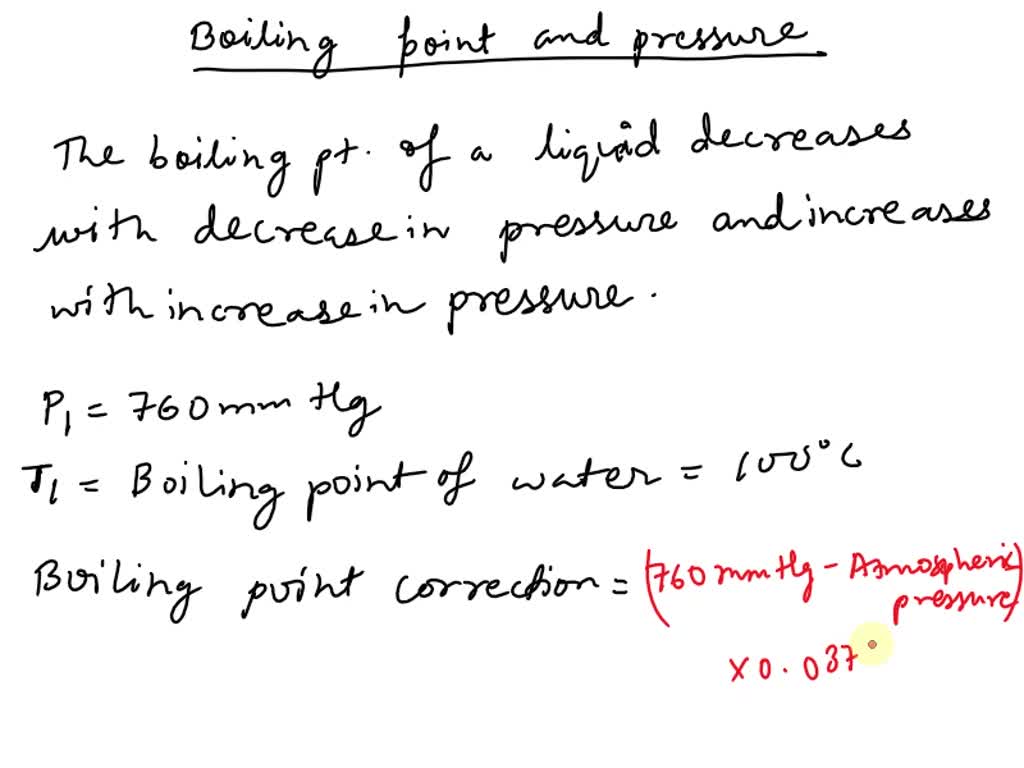 Boiling point and pressure
The boiling pt. of a liquid decreases
with decrease in pressure and increases
with increase in pressure.
P1 = 760 mm Hg
T1 = Boiling point of water = 100°C
Boiling point correction = (760 mm Hg - Atmospheric
pressure)
x 0.037